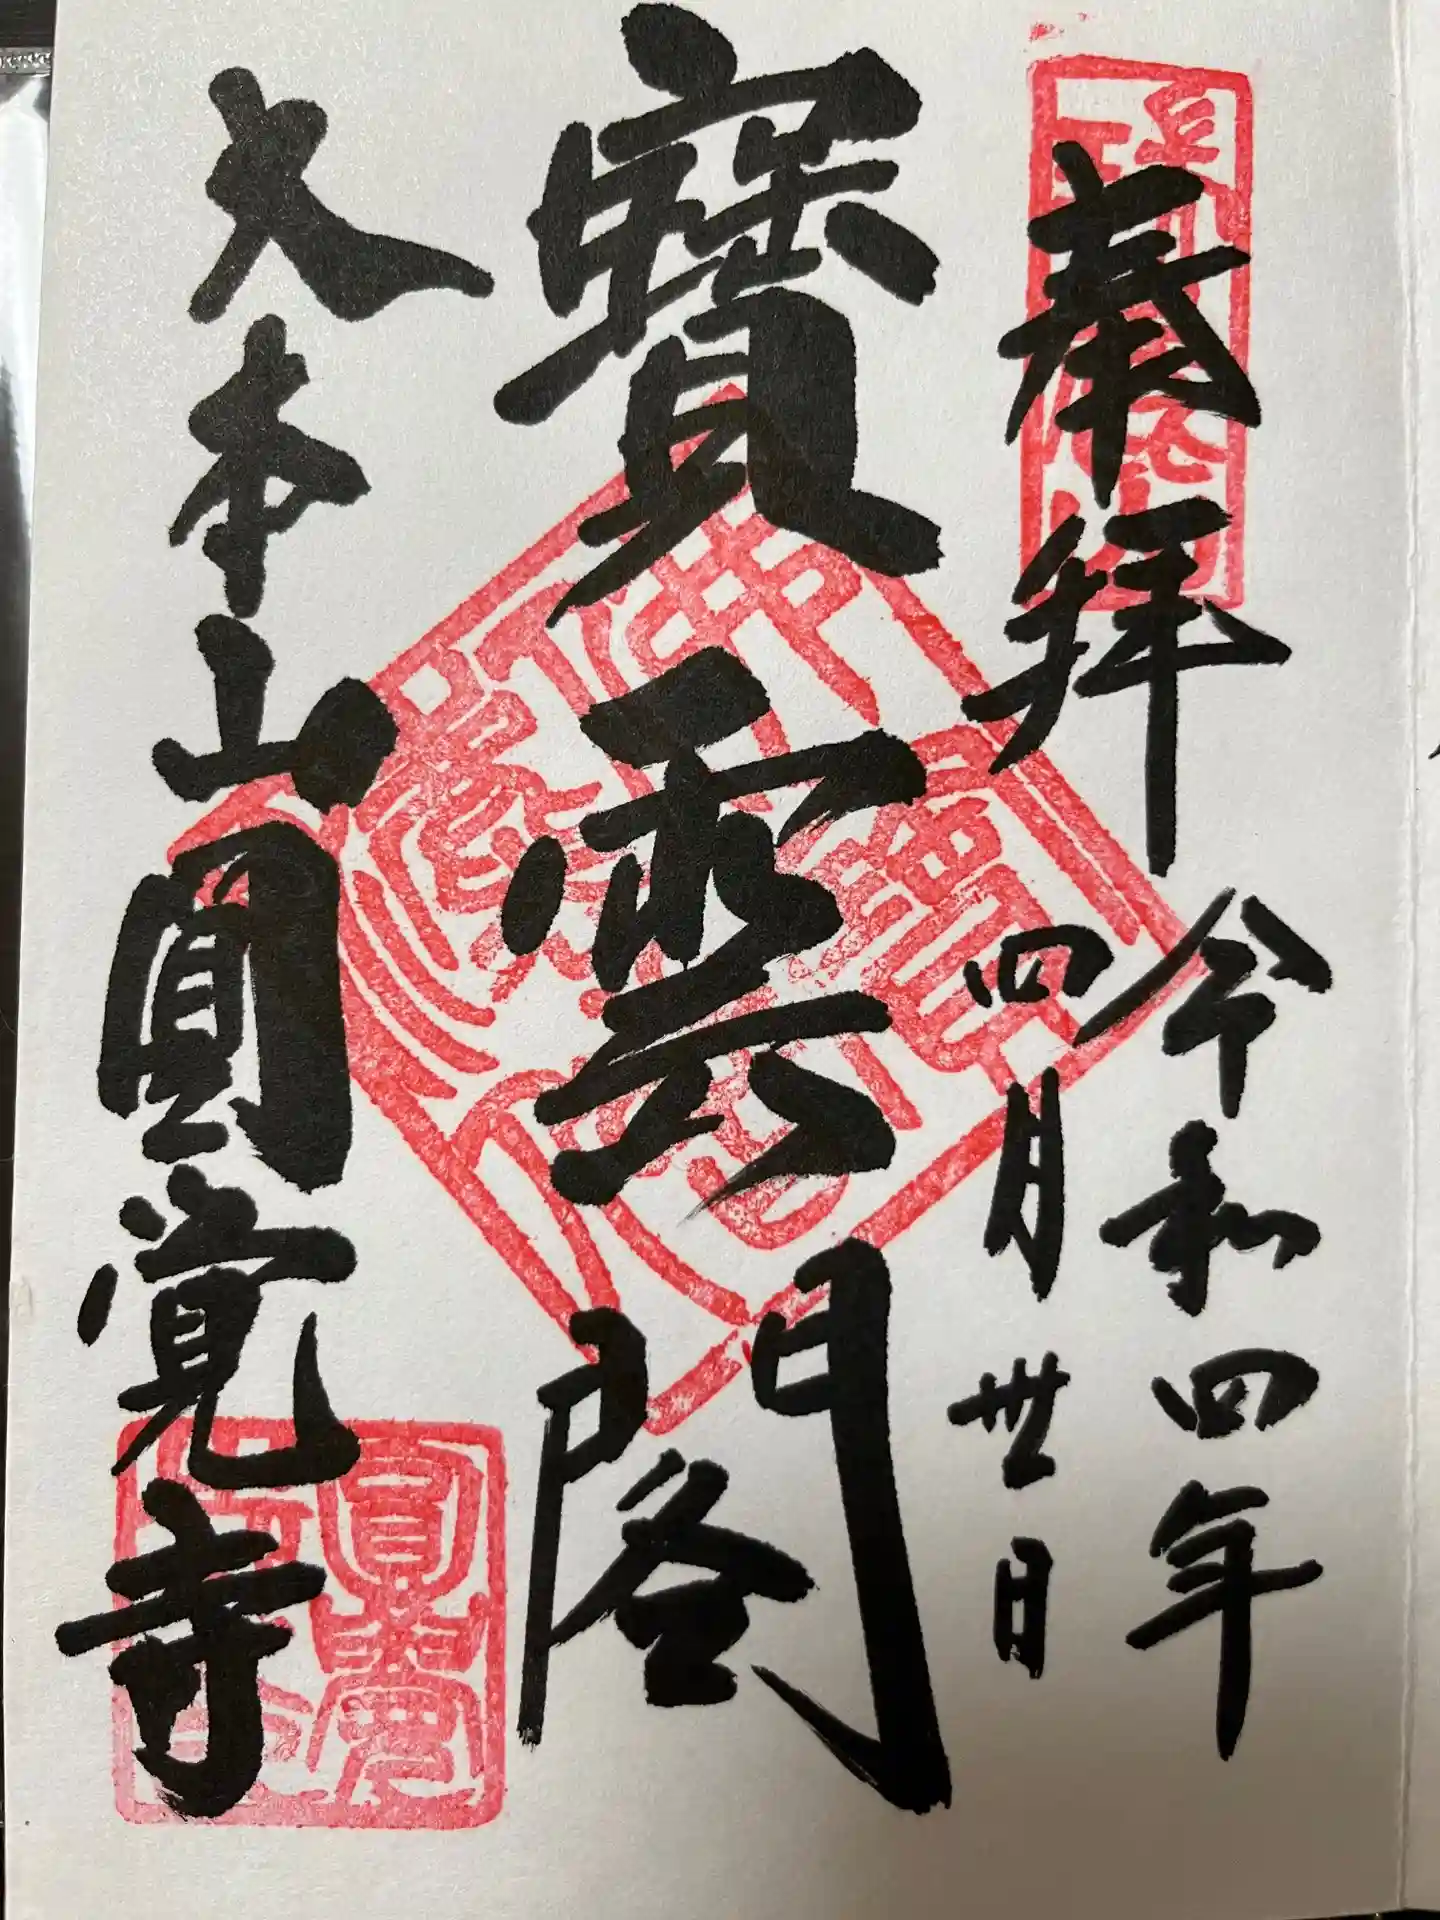 奉拜
令和四年
四月卅日
寶雲閣
大本山圓覚寺